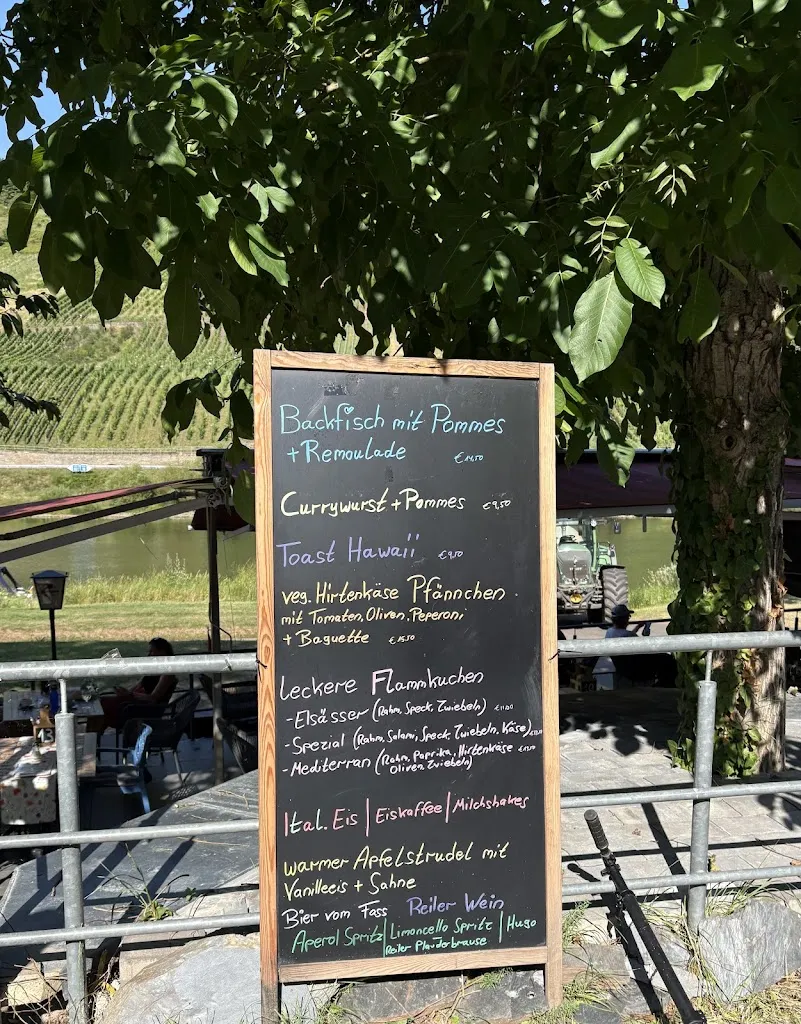 Backfisch mit Pommes
+ Remoulade €14,50
Currywurst + Pommes €9,50
Toast Hawaii €9,50
veg. Hirtenkäse Pfännchen
mit Tomaten, Oliven, Peperoni
+ Baguette
leckere Flammkuchen
- Elsässer (Rahm, Speck, Zwiebeln)
- Spezial (Rahm, Salami, Speck, Zwiebeln, Käse)
- Mediterran (Rahm, Paprika, Hirtenkäse
Oliven, Zwiebeln)
Ital. Eis | Eiskaffee | Milchshakes
warmer Apfelstrudel mit
Vanilleeis + Sahne
Bier vom Fass Reiler Wein
Aperol Spritz | Limoncello Spritz | Hugo
Reiler Plauderbrause